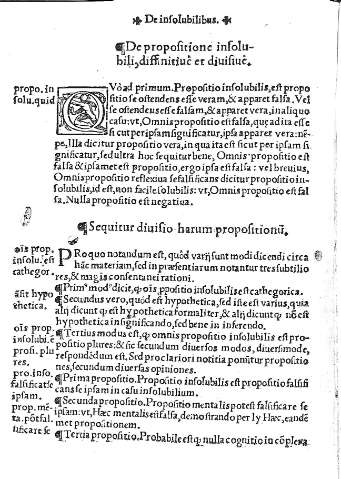 ✠ De insolubilibus. ✠
¶De propositione insolu-
bili, diffinitiue et diuisiue.
propo. in
solu. quid
QVòad primum. Propositio insolubilis, est propo
sitio se ostendens esse veram, & apparet falsa. Vel
se ostendens esse falsam, & apparet vera, in aliquo
casu: vt, Omnis propositio est falsa, quę adita esse
sicut per ipsam significatur, ipsa apparet vera: nē-
pe, Illa dicitur propositio vera, in qua ita est sicut per ipsam si
gnificatur, sed ultra hoc sequitur bene, Omnis propositio est
falsa & ipsamet est propositio, ergo ipsa est falsa: vel breuius,
Omnis propositio reflexiua se falsificans dicitur propositio in-
solubilis, id est, non facile solubilis: vt, Omnis propositio est fal
sa, Nulla propositio est negatiua.
¶Sequitur diuisio harum propositionū.
oīs prop.
insolu. est
cathegor.
PRo quo notandum est, quòd varij sunt modi dicendi circa
hāc materiam, sed in praesentiarum notantur tres subtilio
res, & magis consentanei rationi.
¶Primꝰ modꝰ dicit, ꝙ oīs ꝓpositio insolubilis est cathegorica.
hypo
thetica.
¶Secundus vero, quòd est hypothetica, sed iste est varius, quia
alij dicunt ꝙ est hypothetica formaliter, & alij dicunt ꝙ nō est
hypothetica in significando, sed bene in inferendo.
oīs prop.
insolubi. ē
plu
res.
¶Tertius modus est, ꝙ omnis propositio insolubilis est pro-
positio plures: & sic secundum diuersos modos, diuersimode,
respondēdum est. Sed pro clariori notitia ponūtur propositio
nes, secundum diuersas opiniones.
pro. inso.
falsificat se
ipsam.
¶Prima propositio. Propositio insolubilis est propositio falsifi
cans se ipsam in casu insolubilium.
prop. mē-
ta. pōt fal
tificare se
¶Secunda propositio. Propositio mentalis potest falsificare se
ipsam: vt, Haec mentalis est falsa, demonstrando per ly Haec, eandē
met propositionem.
¶Tertia propositio. Probabile est ꝙ nulla cognitio incōplexa